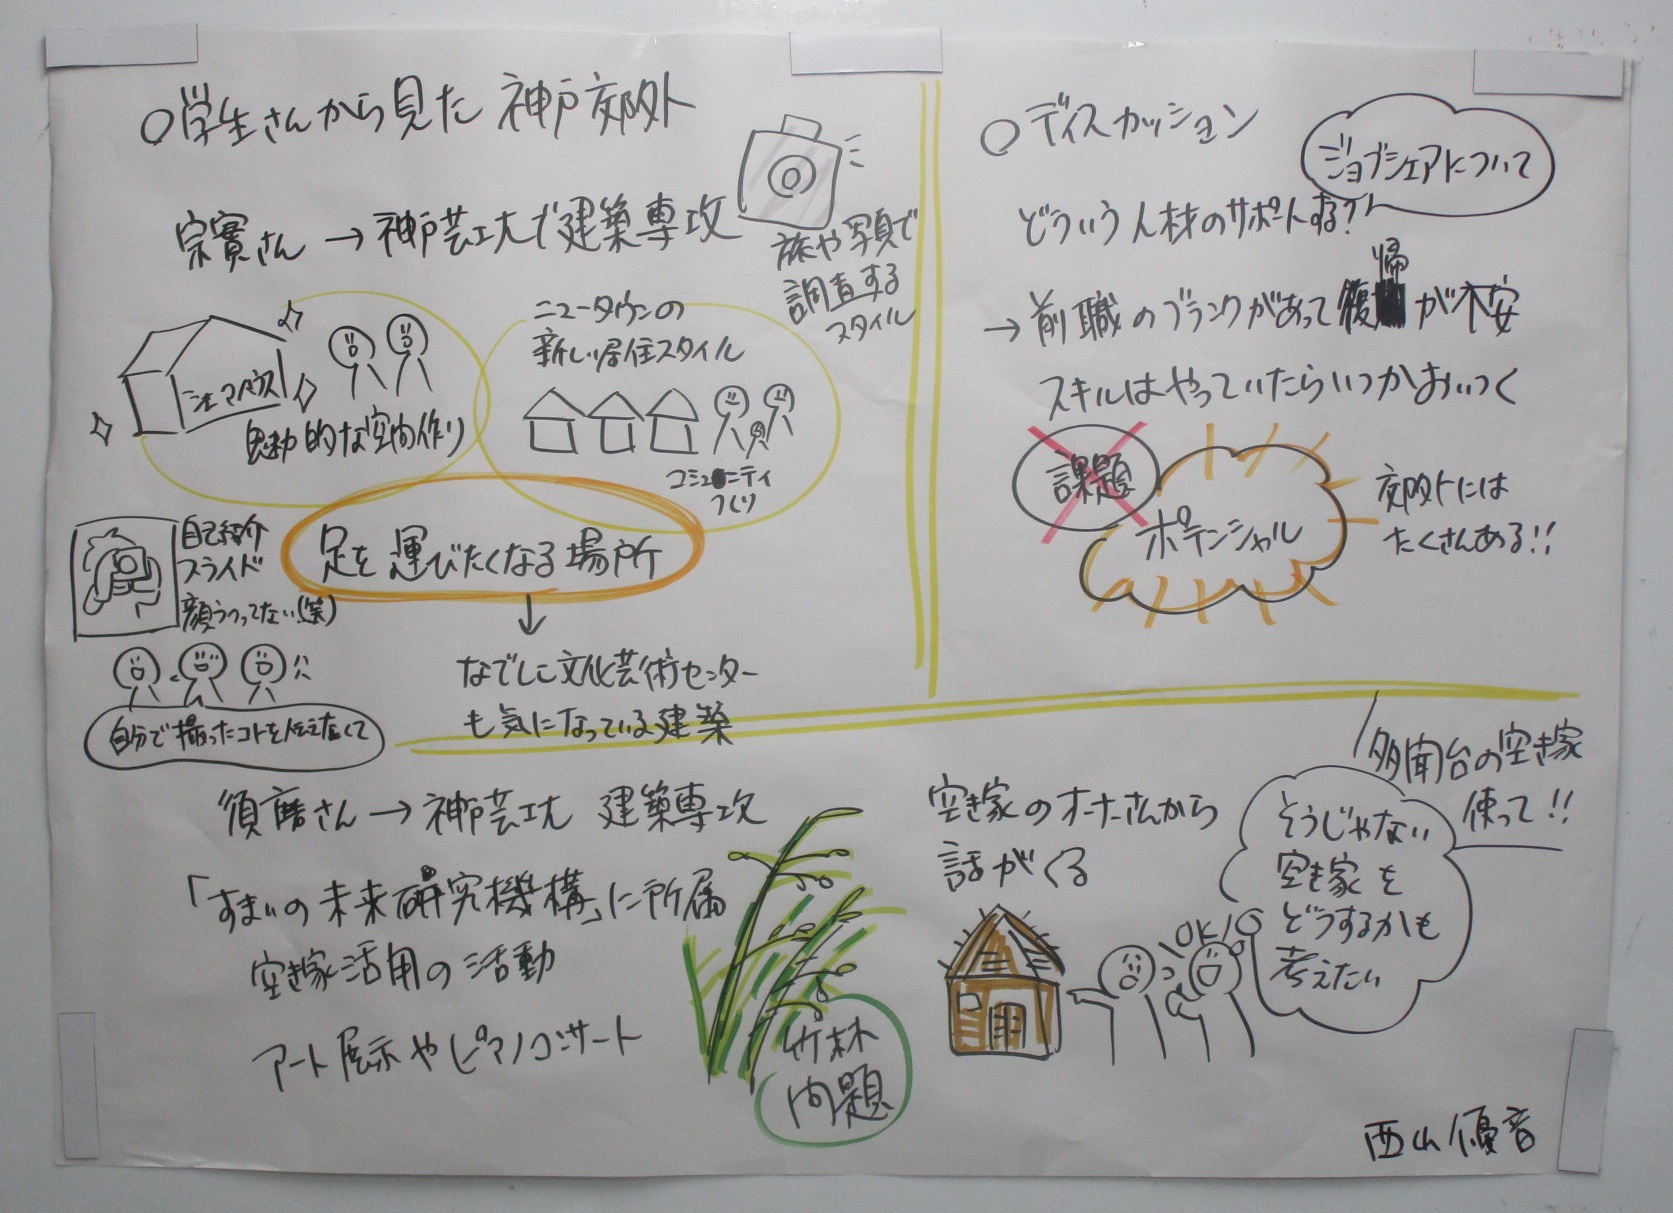 ○学生さんから見た神戸郊外
宗實さん→神戸芸工大で建築専攻
旅や写真で
調査する
スタイル
シェアハウス
魅力的な空間作り
ニュータウンの
新しい居住スタイル
コミュニティ
づくり
足を運びたくなる場所
↓
なでしこ文化芸術センター
も気になっている建築
自己紹介
スライド
顔うつってない(笑)
自分で撮ったコトを伝えたくて
須磨さん→神戸芸工大 建築専攻
「すまいの未来研究機構」に所属
空き家活用の活動
アート展示やピアノコンサート
竹林
問題
○ディスカッション
ジョブシェアについて
どういう人材のサポートする?
→前職のブランクがあって復帰が不安
スキルはやっていたらいつかおいつく
課題
ポテンシャル
郊外には
たくさんある!!
空き家のオーナーさんから
話がくる
多聞台の空き家
使って!!
OK!
そうじゃない
空き家を
どうするかも
考えたい
西山優音